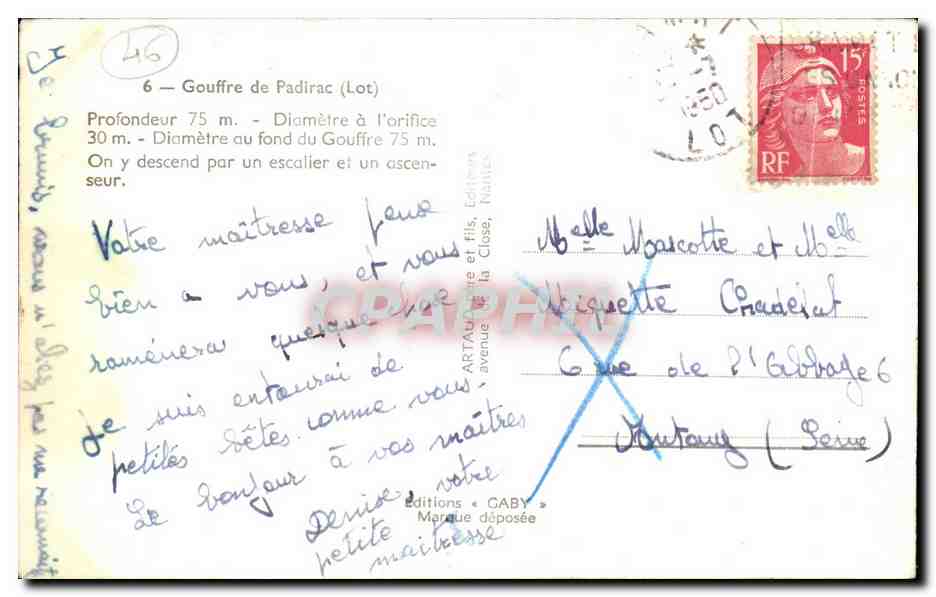 46
6 — Gouffre de Padirac (Lot)
Profondeur 75 m. - Diamètre à l'orifice
30 m. - Diamètre au fond du Gouffre 75 m.
On y descend par un escalier et un ascen-
seur.
Votre maîtresse pense
bien a vous, et vous
raménera quelque chose
Je suis entourai de
petités bêtes comme vous.
Le bonjour à vos maîtres
Denise, votre
petite
maitresse
Je
vous n'alez pas me
ARTAUD père et fils, Editeurs
avenue de la Close, Nantes
Editions « GABY »
Marque déposée
15F
POSTES
RF
1950
LOT
Melle Mascotte et Melle
Miquette
6 rue de l'Abbaye 6
(Seine)
CPAPHIL